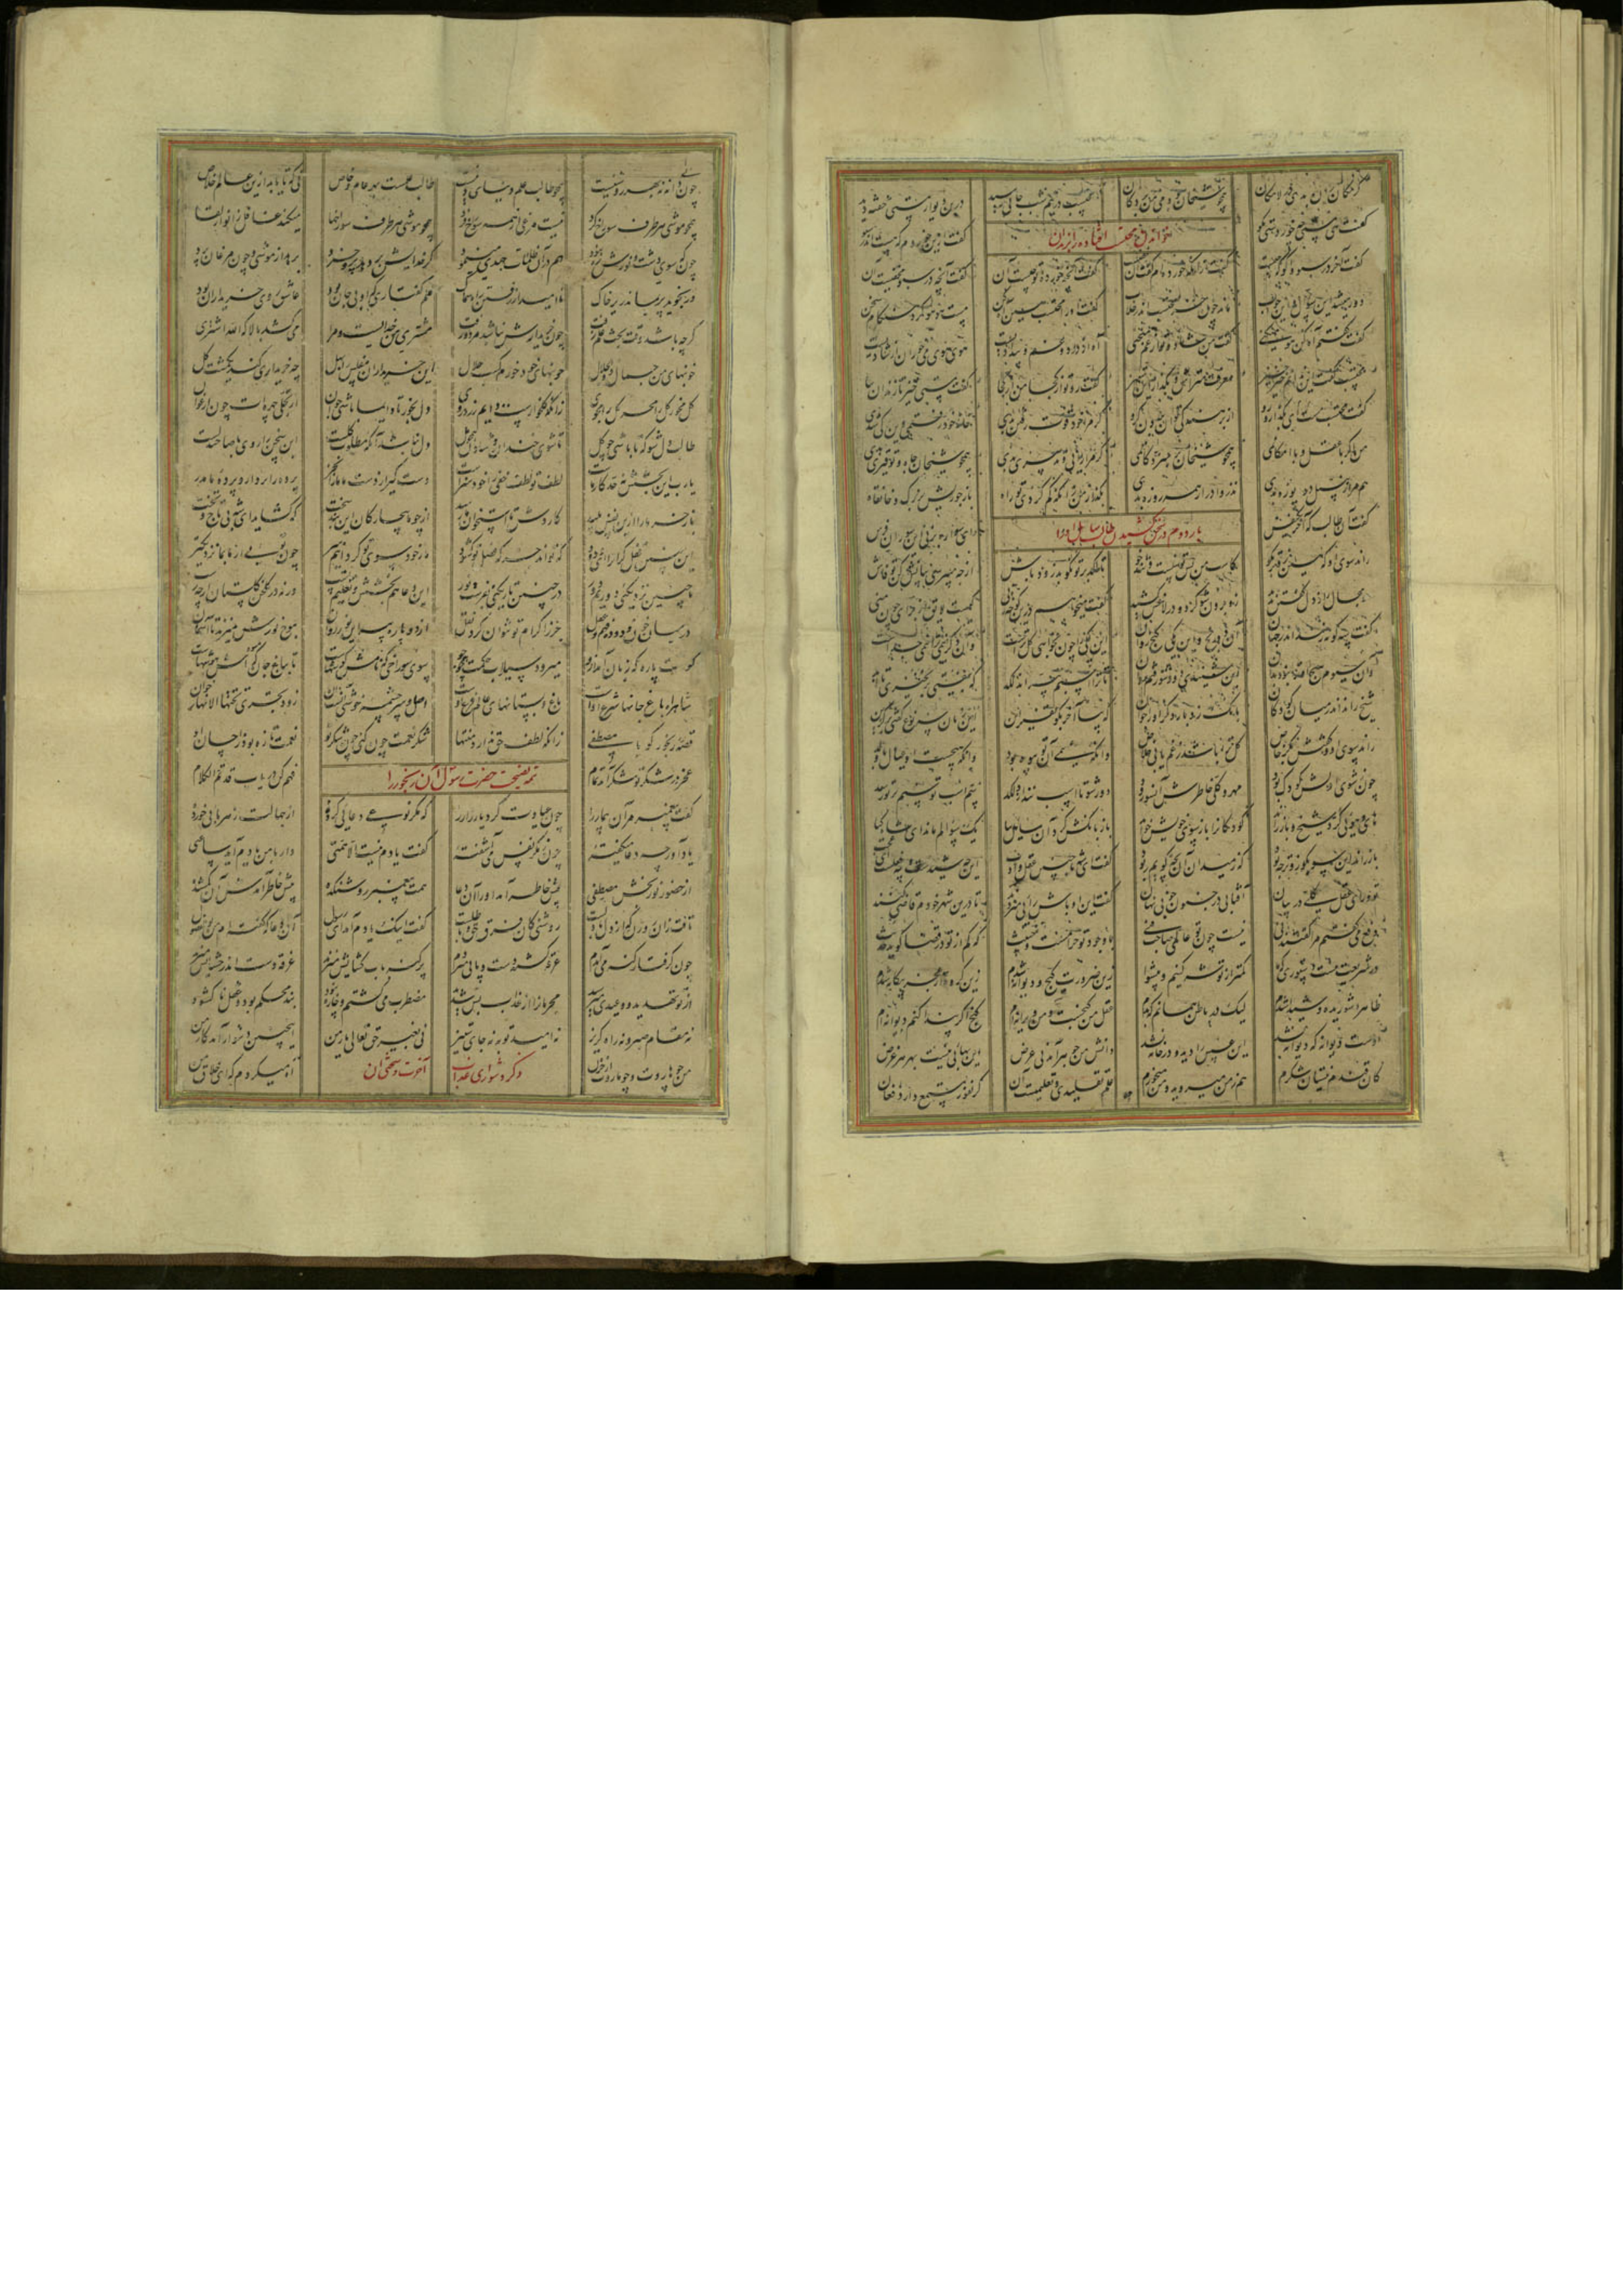 گر زمکان ره بدی در لامکان
همچو شیخان بودمی من بر دکان
محتسب در نیم شب جایی رسید
در بن دیوار مستی خفته دید
خواندن محتسب افتاده را بزندان
گفت هی مستی چه خوردستی بگو
گفت ازین خوردم که هست اندر سبو
گفت آخر در سبو واگو که چیست
گفت از آنکه خورده ام گفت آن خفیست
گفت آنچه خورده تو چیست آن
گفت آنچه در سبو مخفیست آن
دور میشد این سوال و این جواب
ماند چون خر محتسب اندر خلاب
گفت او را محتسب هین آه کن
مست هوهو کرد هنگام سخن
گفت گفتم آه کن هو میکنی
گفت من شاد و تو از غم منحنی
آه از درد و غم و بیدادیست
هوی هوی می خوران از شادیست
محتسب گفت این ندانم خیز خیز
معرفت متراش و بگذار این ستیز
گفت رو تو از کجا من از کجا
گفت مستی خیز تا زندان بیا
گفت مست ای محتسب بگذار و رو
از برهنه کی توان بردن گرو
گر مرا خود قوت رفتن بدی
خانه خود رفتمی وین کی شدی
من اگر با عقل و با امکانمی
همچو شیخان بر سر دکانمی
گر مرا رایی و تدبیری بدی
همچو شیخان جاه و توقیری بدی
هم مرا زنبیل و دریوزه بدی
نذر و ادرار همه روزه بدی
بگذر از من زانکه گم کردی تو راه
باز جو ریش بزرگ و خانقاه
بار دوم در سخن کشیدن آن سایل
گفت آن طالب که آخر یک نفس
ای سواره بر نی این سو ران فرس
راند سوی او که هین زوتر بگو
کاسب من بس توسنست و تندخو
تا لگد بر تو نکوبد زود باش
از چه میپرسی بیانش کن تو فاش
او مجال راز دل گفتن ندید
زو برون شو کرد و در لاغش کشید
گفت میخواهم درین کوچه زنی
کیست لایق از برای چون منی
گفت سه گونه زنند اندر جهان
آن دو رنج و این یکی گنج روان
آن یکی را چون بخواهی کل تراست
وآن دگر نیمی ترا نیمی جداست
وان سیوم هیچ او ترا نبود بدان
این شنیدی دور شو رفتم روان
تا ترا اسپم نپراند لگد
که بیفتی بر نخیزی تا ابد
شیخ راند اندر میان کودکان
بانگ زد بار دگر او را جوان
که بیا آخر بگو تفسیر این
این زنان سه نوع گفتی بر گزین
راند سوی او و گفتش بکر خاص
کل ترا باشد ز غم یابی خلاص
وانکه نیمی آن تو بیوه بود
وانکه هیچست آن عیال با ولد
چون ز شوی اولش کودک بود
مهر و کل خاطرش آنسو رود
دور شو تا اسپ نندازد لگد
سم اسب توسنم بر تو رسد
های هویی کرد شیخ و باز راند
کودکانرا باز سوی خویش خواند
باز بانگش کرد آن سایل بیا
یک سوالم ماند ای شاه کیا
باز راند این سو بگو زوتر چه بود
که ز میدان آن بچه گویم ربود
گفت ای شه با چنین عقل و ادب
این چه شیدست این چه فعلست ای عجب
تو ورای عقل کلی در بیان
آفتابی در جنون چونی نهان
گفت این اوباش رایی میزنند
تا درین شهر خودم قاضی کنند
دفع میگفتم مرا گفتند نی
نیست چون تو عالمی صاحب فنی
با وجود تو حرامست و خبیث
که کم از تو در قضا گوید حدیث
در شریعت نیست دستوری که ما
کمتر از تو شه کنیم و پیشوا
زین ضرورت گیج و دیوانه شدم
زین گروه از عجز بیگانه شدم
ظاهرا شوریده و شیدا شدم
لیک در باطن همانم که بدم
عقل من گنجست و من ویرانه ام
گنج اگر پیدا کنم دیوانه ام
اوست دیوانه که دیوانه نشد
این عسس را دید و در خانه نشد
دانش من جوهر آمد نی عرض
این بهایی نیست بهر هر غرض
کان قندم نیستان شکرم
هم ز من میروید و من میخورم
علم تقلیدی و تعلیمیست آن
کز نفور مستمع دارد فغان
چون پی دانه نه بهر روشنیست
همچو طالب علم دنیای دنیست
طالب علمست بهر عام و خاص
نی که تا یابد ازین عالم خلاص
همچو موشی هر طرف سوراخ کرد
همچو موشی هر طرف سوراخها
میکند غافل ز انوار لقا
چون که سوی دشت و نورش ره نبود
هم در آن ظلمات جهدی مینمود
گر خدایش پر دهد پر خرد
برهد از موشی و چون مرغان پرد
ور نجوید پر بماند زیر خاک
نا امید از رفتن راه سماک
علم گفتاری که او بی جان بود
عاشق روی خریداران بود
گرچه باشد وقت بحث علم زفت
چون خریدارش نباشد مرد و رفت
مشتری من خدایست و مرا
میکشد بالا که الله اشتری
خونبهای من جمال ذوالجلال
خونبهای خود خورم کسب حلال
این خریداران مفلس را بهل
چه خریداری کند یک مشت گل
گل مخور گل را مخر گل را مجو
زانکه گلخوارست دایم زردرو
دل بخور تا دایما باشی جوان
از تجلی چهره ات چون ارغوان
طالب دل شو که تا باشی چو گل
تا شوی خندان و شادان همچو مل
یارب این بخشش نه حد کار ماست
لطف تو لطف خفی را خود سزاست
دست گیر از دست ما ما را بخر
پرده را بردار و پرده ما مدر
باز خر ما را ازین نفس پلید
کاردش تا استخوان ما رسید
از چو ما بیچارگان این بند سخت
که گشاید ای شه بی تاج و تخت
این چنین قفل گران را ای ودود
که تواند جز که فضل تو گشود
ما ز خود سوی تو گردانیم سر
چون تویی از ما بما نزدیکتر
با چنین نزدیکی دوریم دور
در چنین تاریکی بفرست نور
این دعا هم بخشش و تعلیم تست
ورنه در گلخن گلستان از چه رست
در میان خون و روده فهم و عقل
جز ز اکرام تو نتوان کرد نقل
از دو پاره پیه این نور روان
موج نورش میزند تا آسمان
گوشت پاره که زبان آمد ازو
میرود سیلاب حکمت همچو جو
سوی سوراخی که نامش گوشهاست
تا بباغ جان که میوه اش هوشهاست
شاهراه باغ جانها شرع اوست
باغ و بستانهای عالم فرع اوست
اصل و سرچشمه خوشی آنست آن
زود تجری تحتها الانهار خوان
قصه رنجور گو با مصطفی
زانکه لطف حق ندارد منتها
شکر نعمت چون کنی چون شکر تو
نعمت تازه بود ز احسان او
عجز تو در شکر شکر آمد تمام
فهم کن دریاب قد تم الکلام
تتمه نصیحت حضرت رسول آن رنجور را
گفت پیغمبر مر آن بیمار را
چون عیادت کرد یار زار را
که مگر نوعی دعایی کرده
از جهالت زهر بایی خورده
یاد آور چه دعا میگفته
چون ز مکر نفس می آشفته
گفت یادم نیست الا همتی
دار با من یادم آید ساعتی
از حضور نوربخش مصطفی
پیش خاطر آمد او را آن دعا
همت پیغمبر روشنکده
پیش خاطر آمدش آن گمشده
تافت زان روزن که از دل تا دلست
روشنی کان فرق حق و باطلست
گفت اینک یادم آمد ای رسول
آن دعا که گفته ام من بوالفضول
چون گرفتار گنه می آمدم
غرقه گشته دست و پایی میزدم
غرقه دست اندر حشایش میزدم
از تو تهدید و وعیدی میرسید
مجرمان را از عذاب بس شدید
مضطرب میگشتم و چاره نبود
بند محکم بود و قفل ناگشود
نه مقام صبر و نه راه گریز
نه امید توبه نه جای ستیز
من چو هاروت و چو ماروت از حزن
آه میکردم که ای خلاق من
ذکر دشواری عذاب آخرت و سختی آن